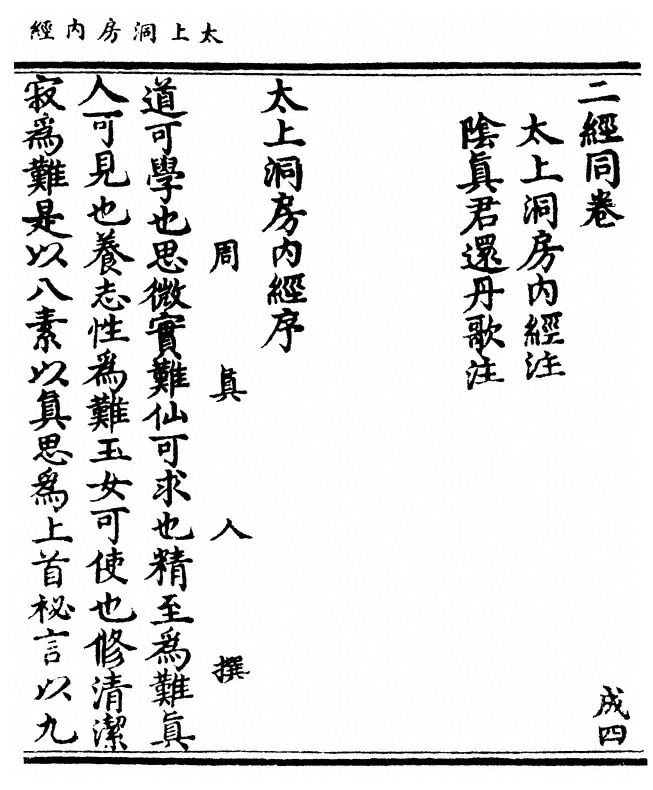 太上洞房内經
二經同卷
成四
太上洞房内經注
陰眞君還丹歌注
太上洞房内經序
周眞人撰
道可學也思微實難仙可求也精至為難眞
人可見也養志性為難玉女可使也修清潔
寂為難是以八素以眞思為上首祕言以九